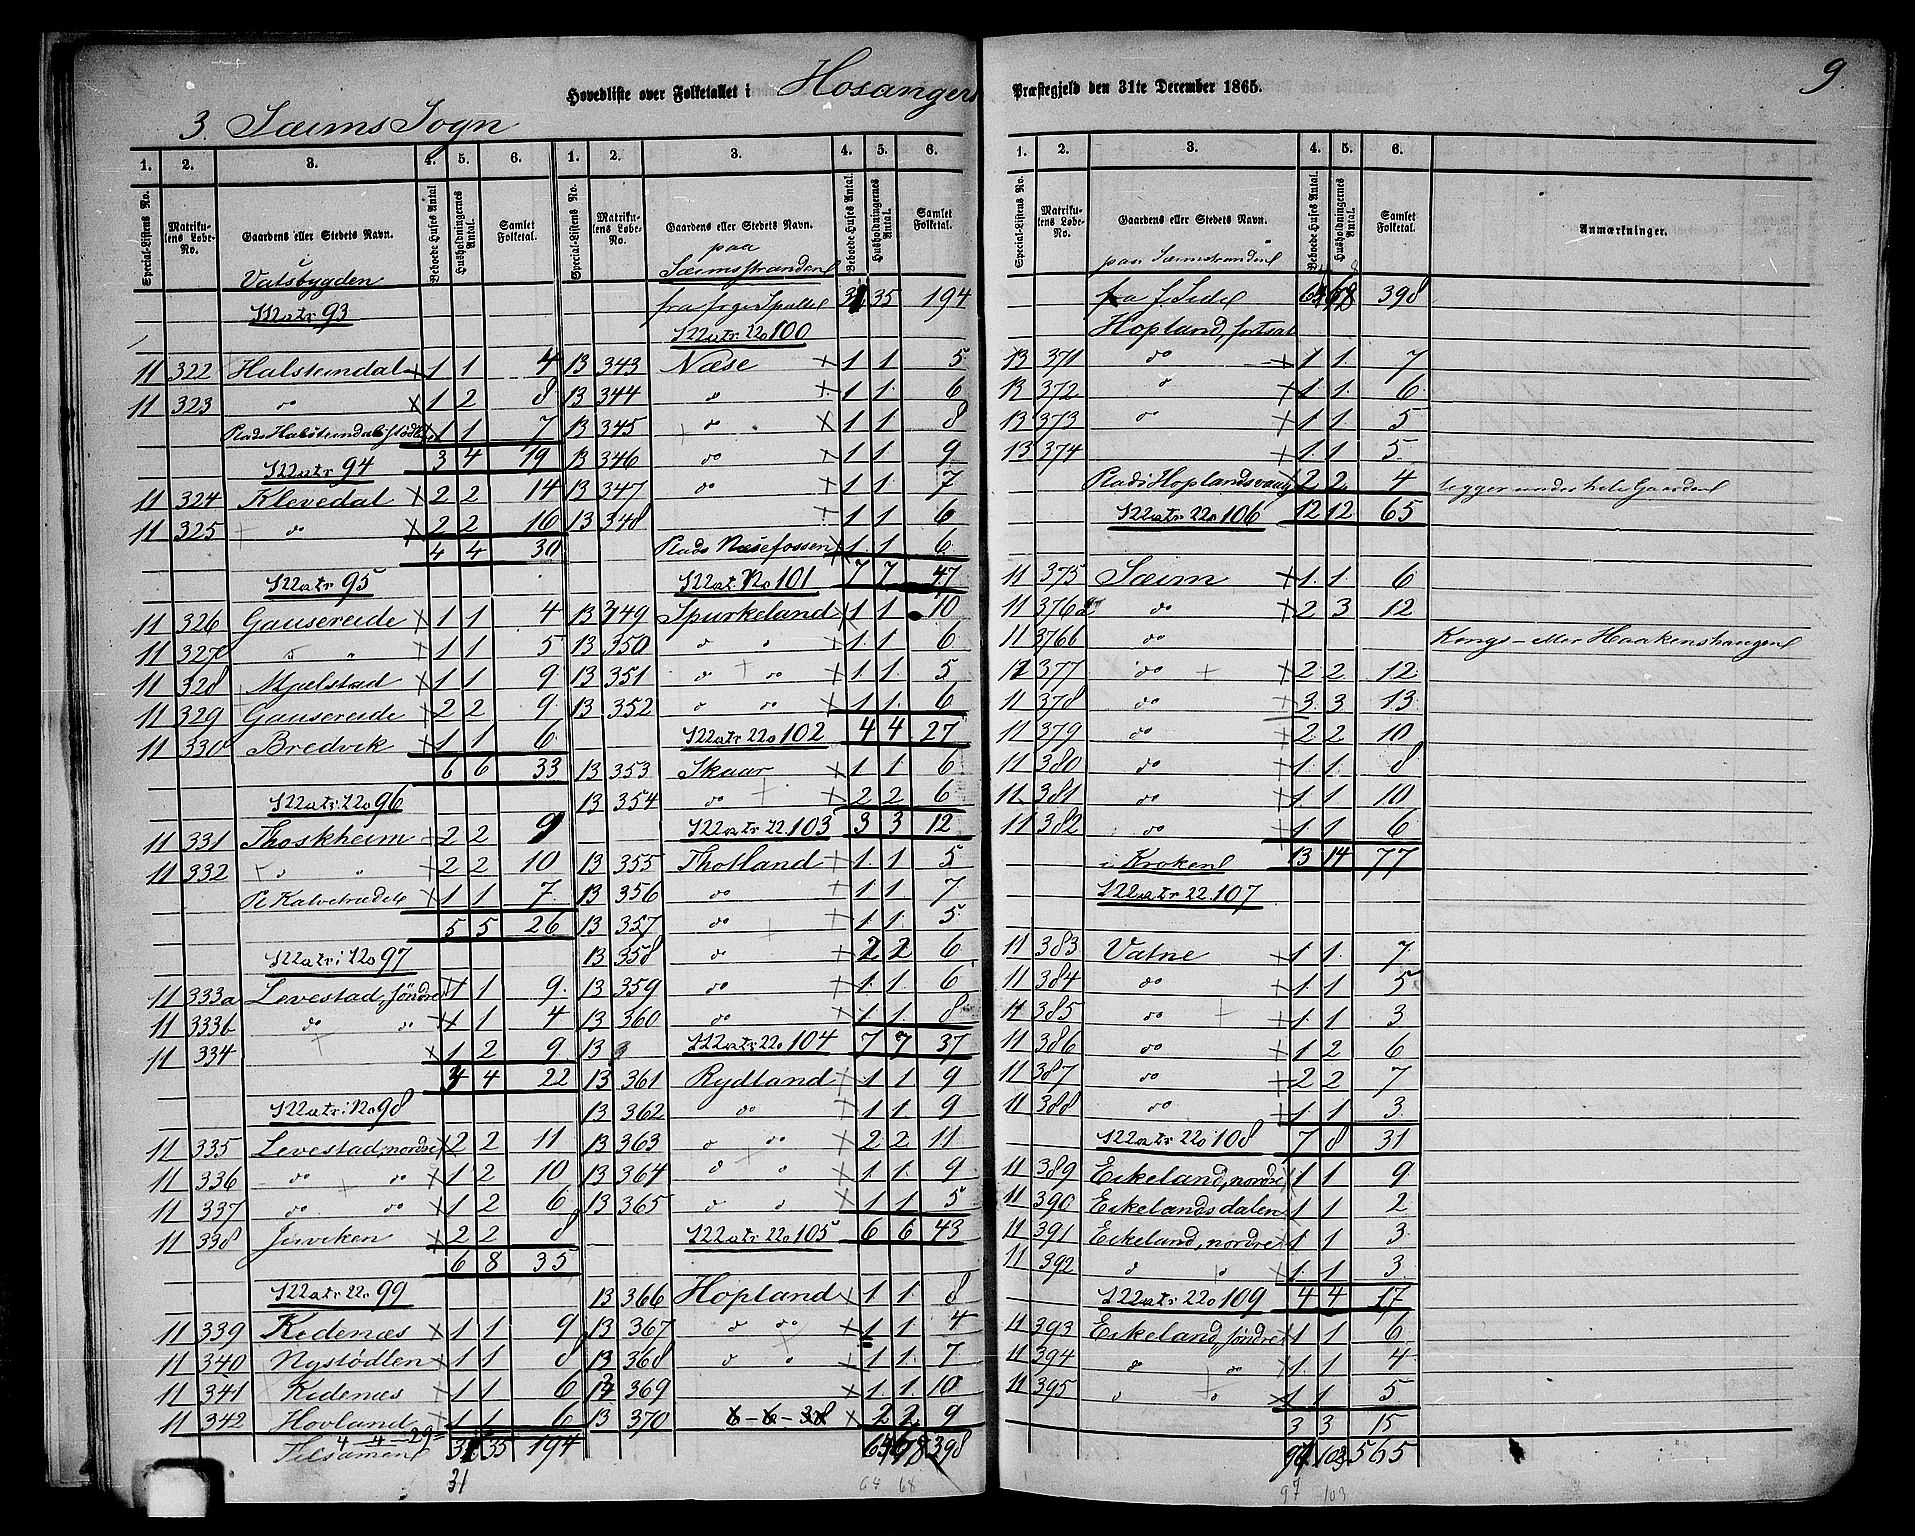 9.
Hovedliste over Folketallet i Hosangers Præstegjeld den 31te December 1865.
3. Sæims Sogn
1. 2. 3. 4. 5. 6.
Special-Listens No. Matrikulens Løbe-No. Gaardens eller Stedets Navn. Beboede Huses Antal. Husholdningernes Antal. Samlet Folketal.
i Vatsbygden
Matr 93
11 322 Halsteindal x 1 1 4
11 323 do x 1 2 8
Plads Halsteindalsstødlen x 1 1 7
Matr 94 3 4 19
11 324 Klevedal x 2 2 14
11 325 do x 2 2 16
4 4 30
Matr 95
11 326 Gausereide x 1 1 4
11 327 " " 1 1 5
11 328 Mjelstad x 1 1 9
11 329 Gausereide x 2 2 9
11 330 Bredvik x 1 1 6
6 6 33
Matr: No 96
11 331 Thoskheim 2 2 9
11 332 " " 2 2 10
Pl Kalvetrædet x 1 1 7
5 5 26
Matr: No 97
11 333a Levestad, søndre x 1 1 9
11 333b do do 1 1 4
11 334 x 1 2 9
4 4 22
Matr: No 98
11 335 Levestad, nordre x 2 2 11
11 336 do do x 1 2 10
11 337 do do x 1 2 6
11 338 Jirviken x 2 2 8
6 8 35
Matr No 99
11 339 Kidenæs x 1 1 9
11 340 Nystødlen x 1 1 8
11 341 Kidenæs x 1 1 6
11 342 Hovland x 1 1 6
4 4 29
Tilsammen 31 35 194
31
1. 2. 3. 4. 5. 6.
Special-Listens No. Matrikulens Løbe-No. Gaardens eller Stedets Navn. Beboede Huses Antal. Husholdningernes Antal. Samlet Folketal.
paa Sæimsstranden
fra forige Spalte 31 35 194
Matr No 100
13 343 Næse x 1 1 5
13 344 " x 1 1 6
13 345 " x 1 1 8
13 346 do 1 1 9
13 347 do 1 1 7
13 348 1 1 6
Plads Næsefossen x 1 1 6
Matr No 101 7 7 47
13 349 Spurkeland x 1 1 10
13 350 " " 1 1 6
13 351 " do 1 1 5
13 352 " do 1 1 6
Matr No 102 4 4 27
13 353 Skaar x 1 1 6
13 354 do 2 2 6
Matr No 103 3 3 12
13 355 Thotland 1 1 5
13 356 do 1 1 7
13 357 do 1 1 5
13 358 do 2 2 6
13 359 do 1 1 6
13 360 do 1 1 8
13 Matr No 104 7 7 37
13 361 Rydland 1 1 9
13 362 do 1 1 9
13 363 " do 2 2 11
13 364 " " 1 1 9
13 365 " " 1 1 5
Matr No 105 6 6 43
13 366 Hopland x 1 1 8
13 367 " do 1 1 4
13 368 " " 1 1 7
13 369 x 1 1 10
13 370 6 - 6 - 38 x 2 2 9
64 68 398
64 68
1. 2. 3. 4. 5. 6.
Special-Listens No. Matrikulens Løbe-No. Gaardens eller Stedets Navn. Beboede Huses Antal. Husholdningernes Antal. Samlet Folketal. Anmærkninger.
paa Sæimstranden
fra f. Side 64 68 398
Hopland, fortsat
13 371 do 1 1 7
13 372 " 1 1 6
13 373 do 1 1 5
13 374 1 1 5
Plads Hoplandsvaag 2 2 4 ligger under hele Gaarden
Matr No 106 12 12 65
11 375 Sæim x 1 1 6
11 376a do x 2 3 12
11 376b do Kongs- eller Haakenshaugen
11 377 do 2 2 12
11 378 do 3 3 13
11 379 do 2 2 10
11 380 do 1 1 8
11 381 do 1 1 10
11 382 do 1 1 6
i Kroken 13 14 77
Matr No 107
11 383 Vatne 1 1 7
11 384 do 1 1 5
11 385 do 1 1 3
11 386 do 1 2 6
11 387 do 2 2 7
11 388 do 1 1 3
Matr No 108 7 8 31
11 389 Eikeland, nordre 1 1 9
11 390 Eikelandsdalen 1 1 2
11 391 Eikeland, nordre 1 1 3
11 392 " " 1 1 3
Matr No 109 4 4 17
11 393 Eikeland, søndre 1 1 6
11 394 " do 1 1 4
11 395 " " 1 1 5
3 3 15
97 103 565
97 103